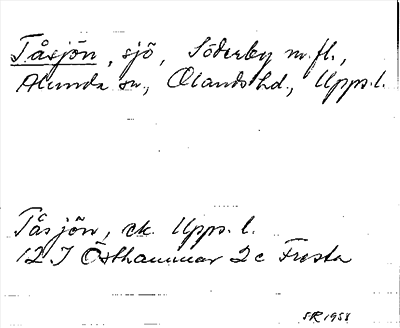 Tåsjön, sjö, Söderby m.fl.,
Alunda sn., Olands hd., Upps.l.
Tåsjön, ek. Upps. l.
12 I Östhammar 2c Frösta
SR 1958